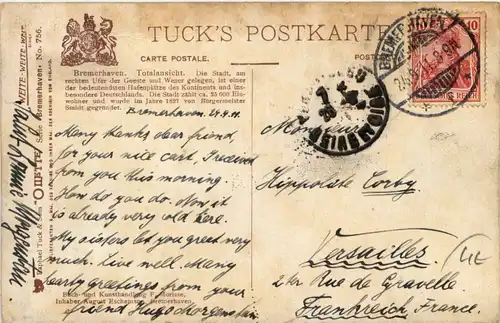 TUCK'S POSTKARTE
CARTE POSTALE.
Bremerhaven. Totalansicht. Die Stadt, am
rechten Ufer der Geeste und Weser gelegen, ist einer
der bedeutendsten Hafenplätze des Kontinents und ins-
besondere Deutschlands. Die Stadt zählt ca. 25 000 Ein-
wohner und wurde im Jahre 1827 von Bürgermeister
Smidt gegründet.
Bremerhaven. 24.9.11.
Many thanks dear friend,
for your nice cart, I received
from you this morning.
How do you do. Now it
is already very old here.
My sisters let you greet very
much. Live well. Many
hearty greetings from your
friend Hugo Morgenstern
Buch- und Kunsthandlung F. Morisse,
Inhaber August Eschepsen, Bremerhaven.
Monsieur
Hippolate Corby
Versailles
2 Rue de Gravelle.
Frankreich, France.
BREMERHAVEN
10
REICH
Raphael Tuck & Sons
"OILETTE"
Serie "Bremerhaven" No. 756.